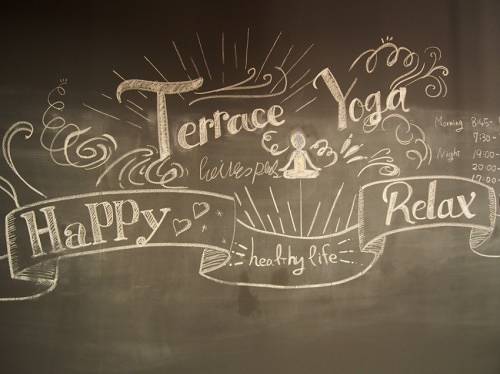 Terrace Yoga
Morning 8:45-
7:30-
Night 19:00-
20:00-
Happy
Relax
healthy life